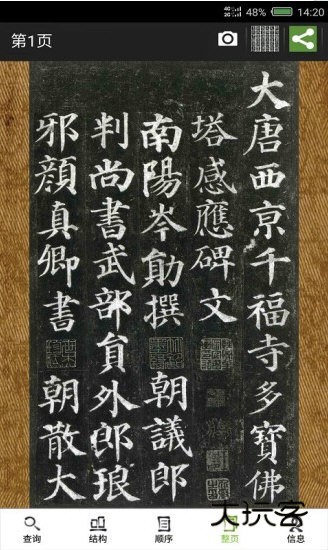 48% 14:20
第1页
大唐西京千福寺多寶佛
塔感應碑文
南陽岑勛撰 朝議郎
判尚書武部貟外郎琅
邪顔真卿書 朝散大
大玩客
查询 结构 顺序 整页 信息